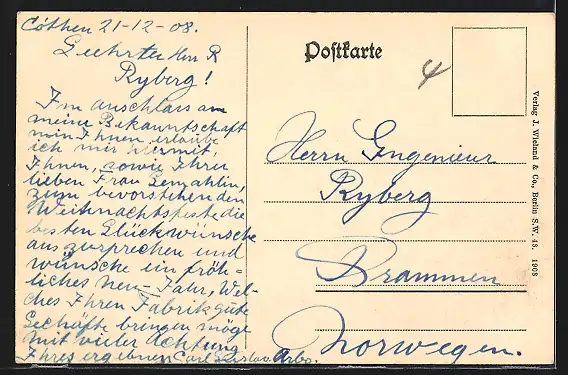 Cöthen 21-12-08.
Geehrter Herr R
Ryberg!
Im anschlass am
meine Bekanntschaft
min Ihnen, erlaube
ich mir hiermit,
Ihnen, sowie Ihrer
lieben Frau Gemahlin,
zum bevorstehenden
Weihnachtsfeste die
besten Glückwünsche
aus zusprechen und
wünsche ein fröh-
liches Neu-Jahr, Wel-
ches Ihren Fabrik gute
Geschäfte bringen möge
Mit vieler Achtung
Ihres ergebnen Carl Arbo.
Postkarte
4
Herrn Ingenieur
Ryberg
Drammen
Norwegen.
Verlag J. Wieland & Co., Berlin S.W. 48. 1908